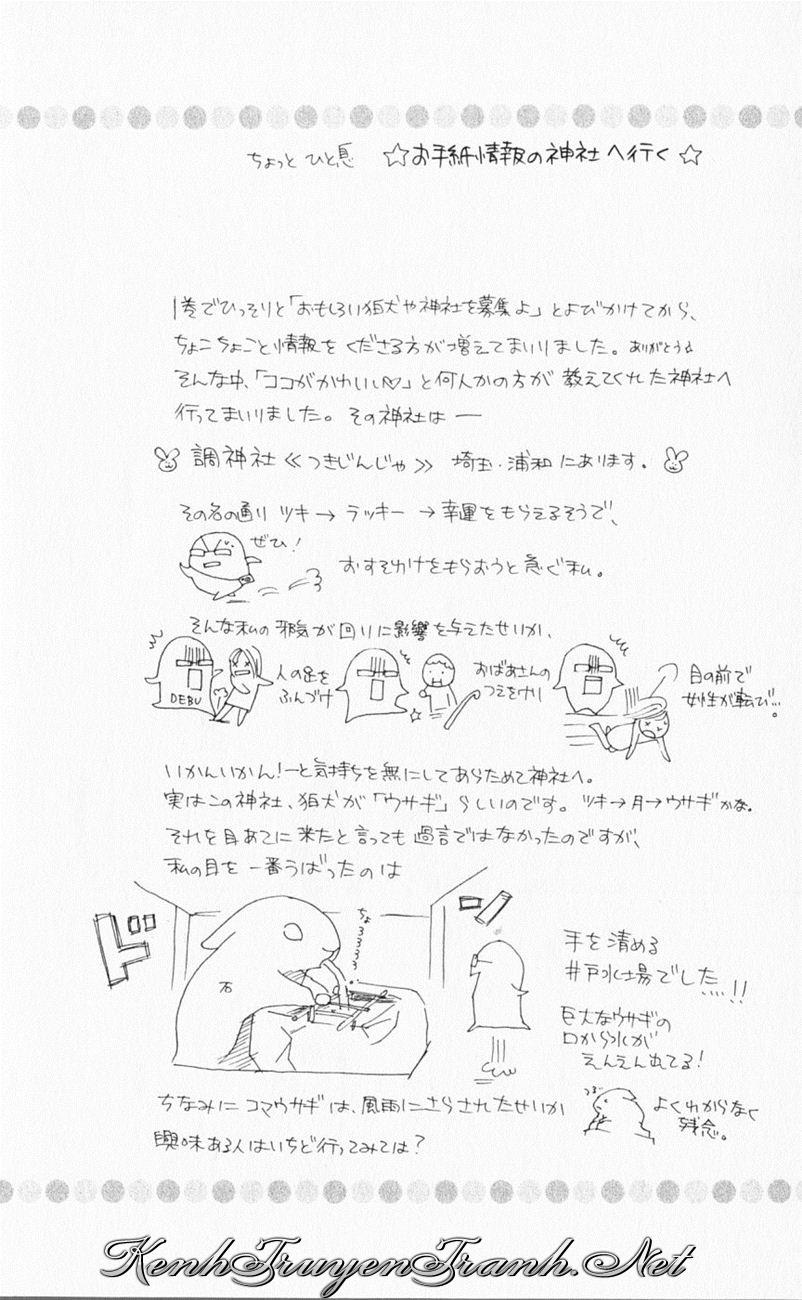 ちょっと ひと息 ☆お手紙情報の神社へ行く☆
1巻でひっそりと「おもしろい狛犬や神社を募集よ」とよびかけてから、
ちょこちょこと情報をくださる方が増えてまいりました。ありがとう
そんな中、「ココがかわいい♡」と何人かの方が教えてくれた神社へ
行ってまいりました。その神社は —
調神社≪つきじんじゃ≫ 埼玉・浦和にあります。
その名の通り ツキ→ ラッキー →幸運をもらえるそうで、
ぜひ!
おすそわけをもらおうと急ぐ私。
そんな私の邪気が回りに影響を与えたせいか、
DEBU
人の足を
ふんづけ
おばあさんの
つえをけり
目の前で
女性が転び…。
いかんいかん!—と気持ちを無にしてあらためて神社へ。
実はこの神社、狛犬が「ウサギ」らしいのです。ツキ→月→ウサギかな。
それを目あてに来たと言っても過言ではなかったのですが、
私の目を一番うばったのは
ドーン
ちょろろろろ
石
手を清める
井戸水場でした…!!
巨大なウサギの
口から水が
えんえん出てる!
ちなみにコマウサギは、風雨にさらされたせいか
つるっ
よくわからなく
残念。
興味ある人はいちど行ってみては?
KenhTruyenTranh.Net